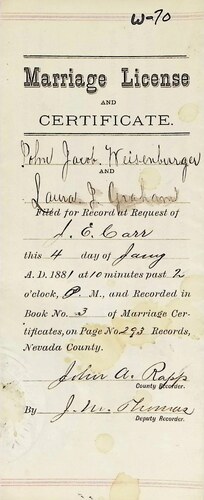 W-70
Marriage License
AND
CERTIFICATE.
John Jacob Weisenburger
AND
Laura F Graham
Filed for Record at Request of
J. E. Carr
this 4 day of Jany
A. D. 1881 at 10 minutes past 2
o'clock, P. M., and Recorded in
Book No. 3 of Marriage Cer-
tificates, on Page No 293 Records,
Nevada County.
John A. Rapp
County Recorder.
By J. M. Thomas
Deputy Recorder.